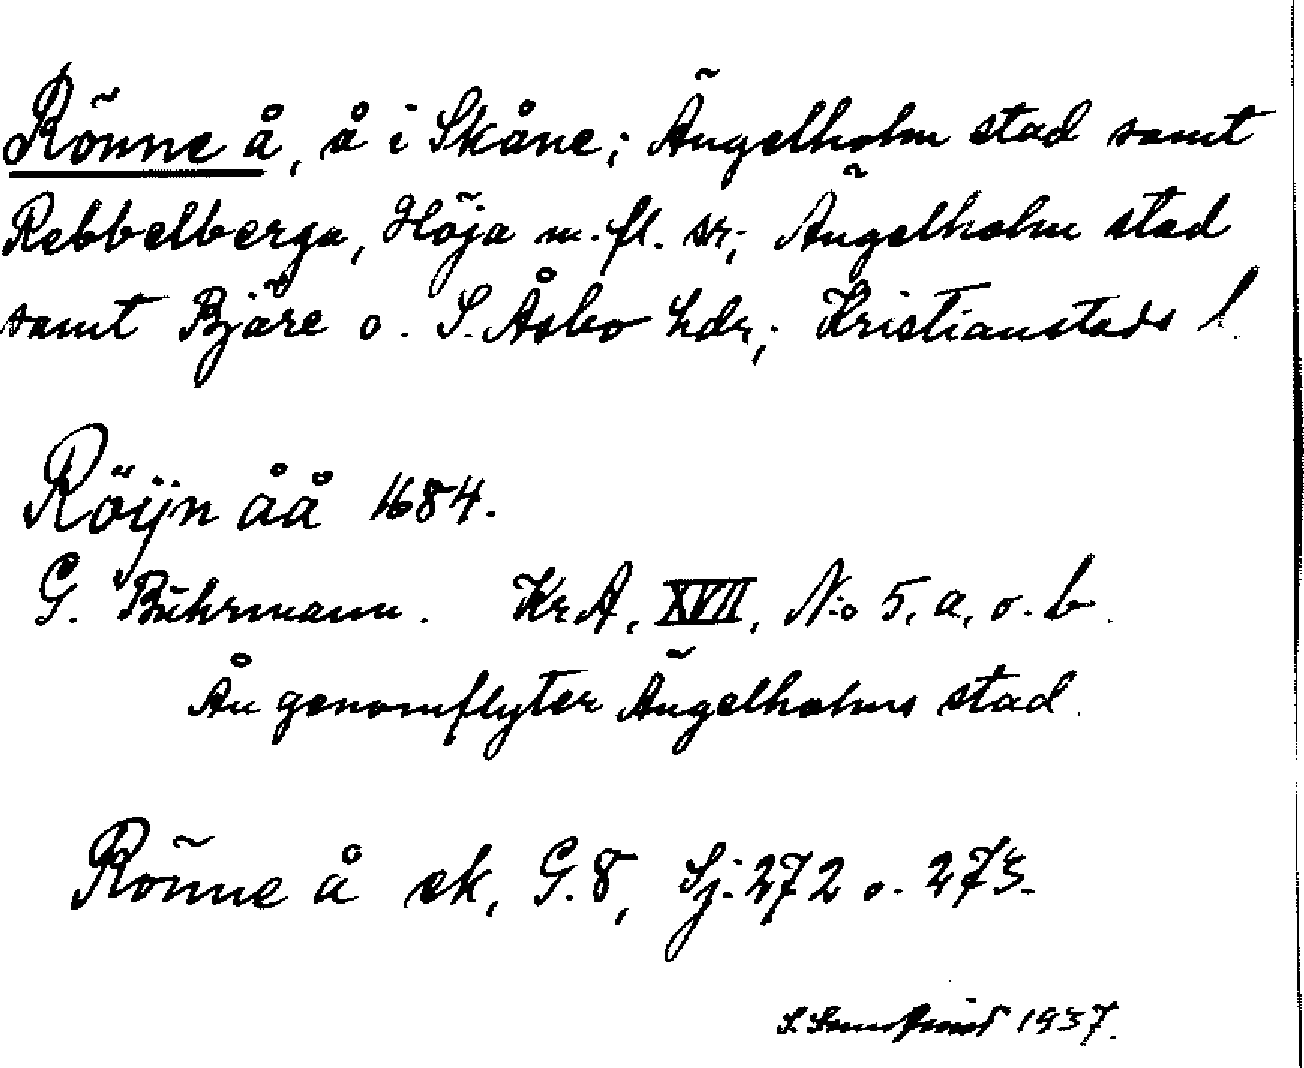 Rönne å, å i Skåne; Ängelholm stad samt
Rebbelberga, Höja m. fl. sr; Ängelholm stad
samt Bjäre o. S. Åsbo hdr; Kristianstads l.
Röijn åå 1684.
G. Buhrmann. KrA, XVII, N:o 5, a, o. b.
Ån genomflyter Ängelholms stad.
Rönne å ek, G. 8, Sj. 272 o. 273.
S. 1937.